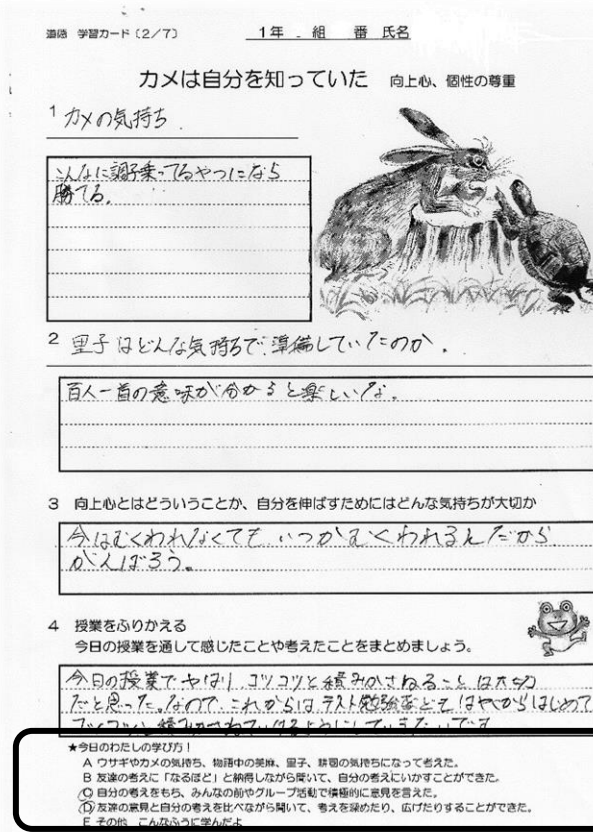 道徳 学習カード〔2/7〕
1年 組 番 氏名
カメは自分を知っていた 向上心、個性の尊重
1 カメの気持ち
こんなに調子乗ってるやつになら
勝てる。
2 里子はどんな気持ちで準備していたのか。
百人一首の意味が分かると楽しいな。
3 向上心とはどういうことか、自分を伸ばすためにはどんな気持ちが大切か
今はむくわれなくてもいつかむくわれるんだから
がんばろう。
4 授業をふりかえる
今日の授業を通して感じたことや考えたことをまとめましょう。
今日の授業でやはりコツコツと積みかさねることは大切
だと思った。なので、これからはテスト勉強などをはやくからはじめて
コツコツと積みかさねていけるようにしていきたいです
★今日のわたしの学び方!
A ウサギやカメの気持ち、物語中の美麻、里子、耕司の気持ちになって考えた。
B 友達の考えに「なるほど」と納得しながら聞いて、自分の考えにいかすことができた。
C 自分の考えをもち、みんなの前やグループ活動で積極的に意見を言えた。
D 友達の意見と自分の考えを比べながら聞いて、考えを深めたり、広げたりすることができた。
E その他 こんなふうに学んだよ